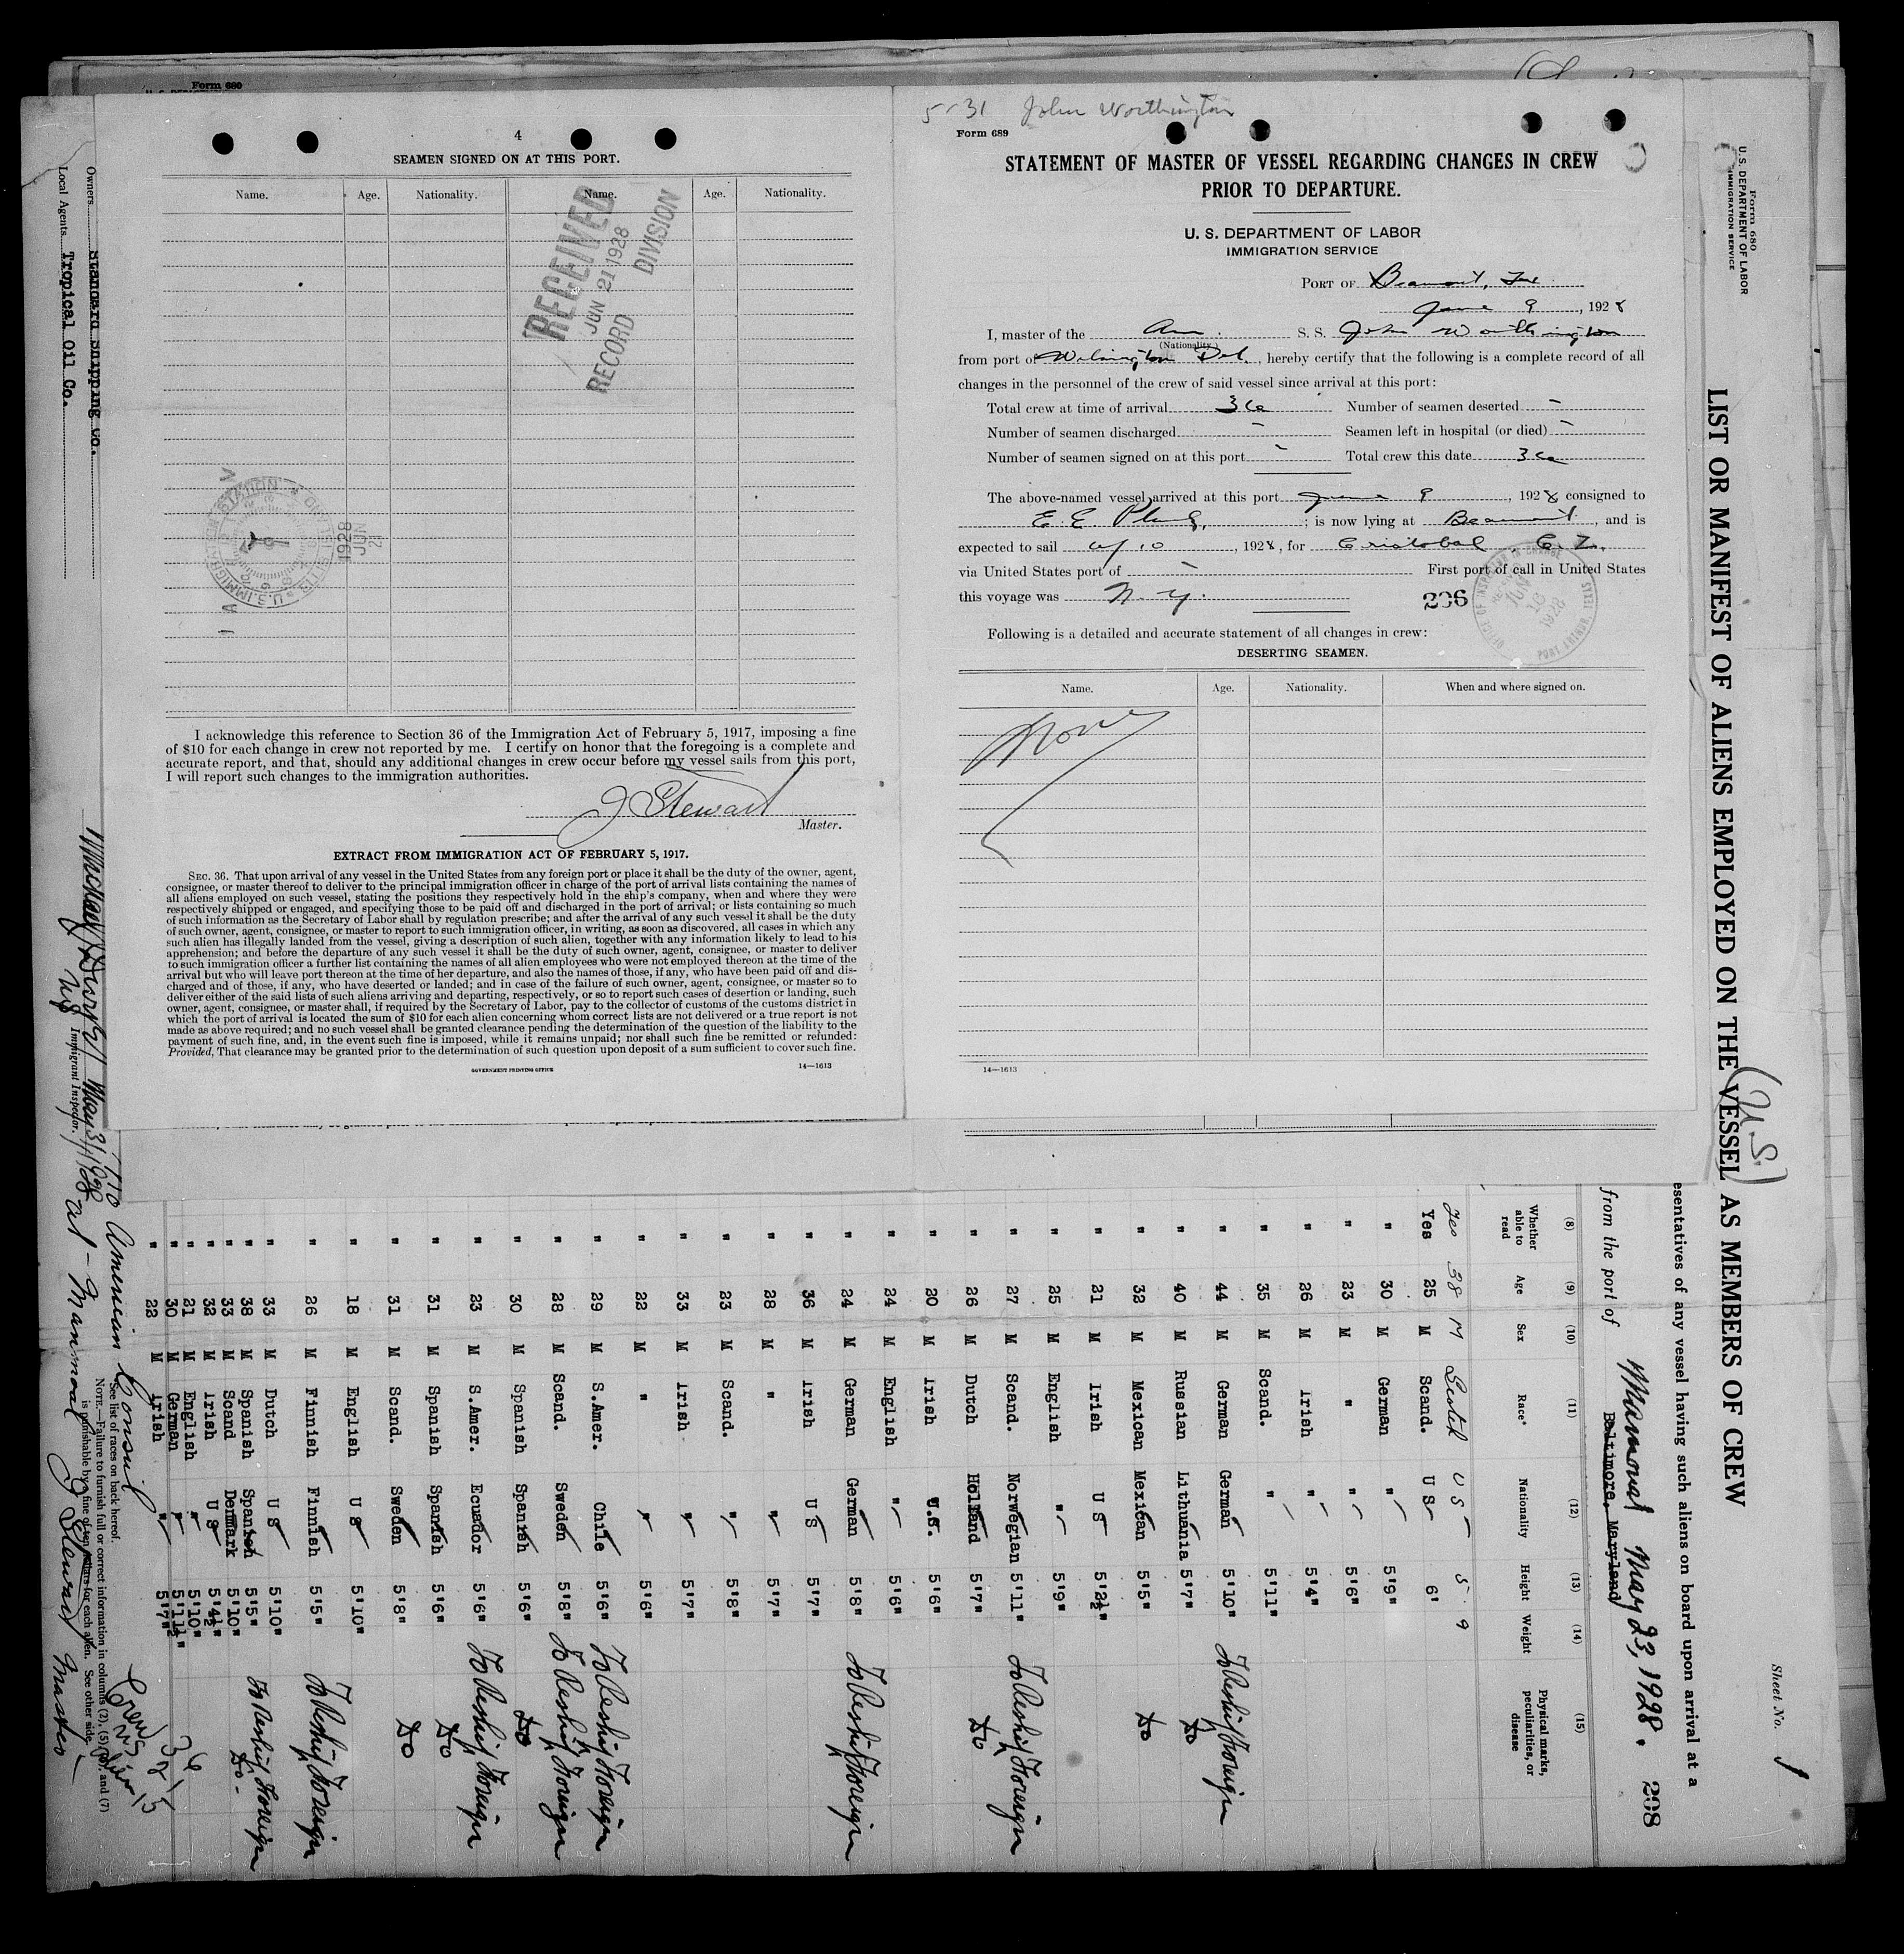 Form 680
4
SEAMEN SIGNED ON AT THIS PORT.
Name. Age. Nationality. Name. Age. Nationality.
RECEIVED
JUN 21 1928
RECORD DIVISION
1928
JUN
21
I acknowledge this reference to Section 36 of the Immigration Act of February 5, 1917, imposing a fine
of $10 for each change in crew not reported by me. I certify on honor that the foregoing is a complete and
accurate report, and that, should any additional changes in crew occur before my vessel sails from this port,
I will report such changes to the immigration authorities.
J Stewart
Master.
EXTRACT FROM IMMIGRATION ACT OF FEBRUARY 5, 1917.
SEC. 36. That upon arrival of any vessel in the United States from any foreign port or place it shall be the duty of the owner, agent,
consignee, or master thereof to deliver to the principal immigration officer in charge of the port of arrival lists containing the names of
all aliens employed on such vessel, stating the positions they respectively hold in the ship's company, when and where they were
respectively shipped or engaged, and specifying those to be paid off and discharged in the port of arrival; or lists containing so much
of such information as the Secretary of Labor shall by regulation prescribe; and after the arrival of any such vessel it shall be the duty
of such owner, agent, consignee, or master to report to such immigration officer, in writing, as soon as discovered, all cases in which any
such alien has illegally landed from the vessel, giving a description of such alien, together with any information likely to lead to his
apprehension; and before the departure of any such vessel it shall be the duty of such owner, agent, consignee, or master to deliver
to such immigration officer a further list containing the names of all alien employees who were not employed thereon at the time of the
arrival but who will leave port thereon at the time of her departure, and also the names of those, if any, who have been paid off and dis-
charged and of those, if any, who have deserted or landed; and in case of the failure of such owner, agent, consignee, or master so to
deliver either of the said lists of such aliens arriving and departing, respectively, or so to report such cases of desertion or landing, such
owner, agent, consignee, or master shall, if required by the Secretary of Labor, pay to the collector of customs of the customs district in
which the port of arrival is located the sum of $10 for each alien concerning whom correct lists are not delivered or a true report is not
made as above required; and no such vessel shall be granted clearance pending the determination of the question of the liability to the
payment of such fine, and, in the event such fine is imposed, while it remains unpaid; nor shall such fine be remitted or refunded:
Provided, That clearance may be granted prior to the determination of such question upon deposit of a sum sufficient to cover such fine.
GOVERNMENT PRINTING OFFICE 14—1613
5-31 John Worthington
Form 689
STATEMENT OF MASTER OF VESSEL REGARDING CHANGES IN CREW
PRIOR TO DEPARTURE.
U. S. DEPARTMENT OF LABOR
IMMIGRATION SERVICE
PORT OF Beaumont, Tex
June 9, 1928
I, master of the Am. S. S. John Worthington
(Nationality)
from port of Wilmington Del., hereby certify that the following is a complete record of all
changes in the personnel of the crew of said vessel since arrival at this port:
Total crew at time of arrival 36 Number of seamen deserted -
Number of seamen discharged - Seamen left in hospital (or died) -
Number of seamen signed on at this port - Total crew this date 36
The above-named vessel arrived at this port June 9, 1928 consigned to
E. E. ; is now lying at Beaumont, and is
expected to sail 10, 1928, for Cristobal, C. Z.
via United States port of - First port of call in United States
this voyage was N. Y.
206
Following is a detailed and accurate statement of all changes in crew:
DESERTING SEAMEN.
Name. Age. Nationality. When and where signed on.
None
14—1613
Form 680
U. S. DEPARTMENT OF LABOR
IMMIGRATION SERVICE
LIST OR MANIFEST OF ALIENS EMPLOYED ON THE VESSEL AS MEMBERS OF CREW
(U.S.)
Sheet No. 1
esentatives of any vessel having such aliens on board upon arrival at a
from the port of Mamonal May 23, 1928.
Baltimore, Maryland
208
(8) (9) (10) (11) (12) (13) (14) (15)
Whether able to read Age Sex Race* Nationality Height Weight Physical marks, peculiarities, or disease
Yes 38 M Scotch US 5.9
Yes 25 M Scand. U S 6'
" 30 M German " 5'9"
" 23 M " " 5'6"
" 26 M Irish " 5'4"
" 35 M Scand. " 5'11"
" 44 M German German 5'10" To Reship Foreign
" 40 M Russian Lithuania 5'7" Do
" 32 M Mexican Mexican 5'5" Do
" 21 M Irish U S 5'2½"
" 25 M English " 5'9"
" 27 M Scand. Norwegian 5'11" To Reship Foreign
" 26 M Dutch Holland 5'7" Do
" 20 M Irish U.S. 5'6"
" 24 M English " 5'6"
" 24 M German German 5'8" To Reship Foreign
" 36 M Irish U S 5'7"
" 28 M " " 5'7"
" 23 M Scand. " 5'8"
" 33 M Irish " 5'7"
" 22 M " " 5'6"
" 29 M S.Amer. Chile 5'6" To Reship Foreign
" 28 M Scand. Sweden 5'8" To Reship Foreign
" 30 M Spanish Spanish 5'6" Do
" 23 M S.Amer. Ecuador 5'6" To Reship Foreign
" 31 M Spanish Spanish 5'6" Do
" 31 M Scand. Sweden 5'8" Do
" 18 M English U S 5'10"
" 26 M Finnish Finnish 5'5" To Reship Foreign
" 33 M Dutch U S 5'10"
" 38 M Spanish Spanish 5'5" To Reship Foreign
" 33 M Scand Denmark 5'10" Do.
" 32 M Irish U S 5'4½"
" 21 M English " 5'10"
" 30 M German " 5'11½"
" 22 M Irish " 5'7"
Crew 36
US 21
Alien 15
See list of races on back hereof.
NOTE.—Failure to furnish full or correct information in columns (2), (5) and (7)
is punishable by a fine of ten dollars for each alien. See other side.
No American Consul
at - Mamonal
J Stewart Master
May 31, 1928
Immigrant Inspector.
Owners Standard Shipping Co.
Local Agents Tropical Oil Co.